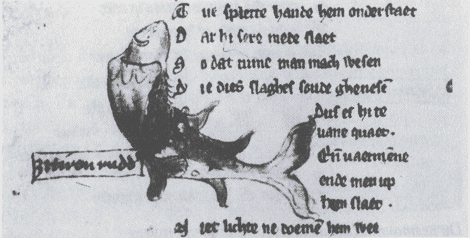 T ue splette hande hem onderstaet
D ar hi sere mede slaet
S o dat cume man mach wesen
D ie dies slaghes soude ghenesē
Dus es hi te
vane quaet.
Eñ vaermēne
ende men up
hem slaet.
Zitiron ridd
N iet lichte ne doemē hem wee